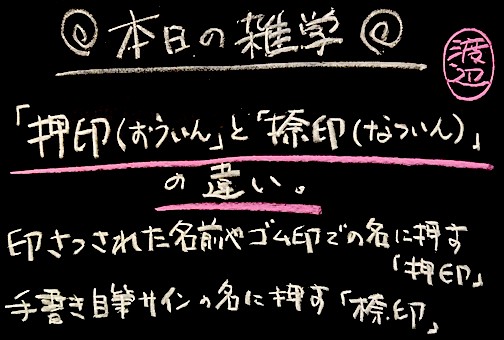 本日の雑学
渡辺
「押印(おういん」と「捺印(なついん)」
の違い。
印さつされた名前やゴム印での名に押す
「押印」
手書き自筆サインの名に押す「捺印」